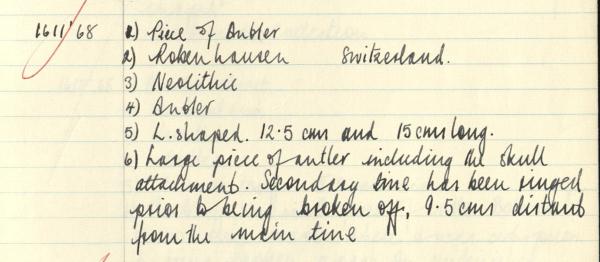 1611'68 1) Piece of Antler
2) Robenhausen Switzerland.
3) Neolithic
4) Antler
5) L.shaped. 12.5 cms and 15 cms long.
6) Large piece of antler including the skull
attachment. Secondary tine has been ringed
prior to being broken off, 9.5 cms distant
from the main tine